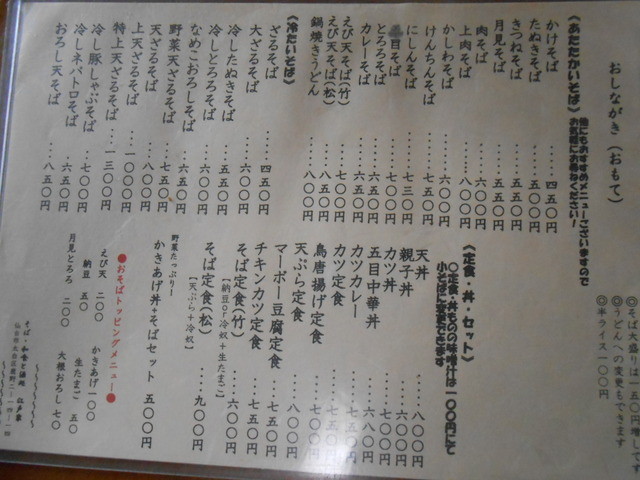 おしながき（おもて）
◎そば大盛りは、五〇円増しです
◎うどんへの変更もできます
◎半ライス一〇〇円
《あたたかいそば》
他にもおすすめメニューございますので
お気軽にお尋ねください！
かけそば……四五〇円
たぬきそば……五〇〇円
きつねそば……五五〇円
月見そば……五五〇円
肉そば……六〇〇円
上肉そば……八〇〇円
かしわそば……六〇〇円
けんちんそば……七五〇円
にしんそば……七三〇円
目そば……六〇〇円
とろろそば……六五〇円
カレーそば……六五〇円
えび天そば（竹）……七〇〇円
えび天そば（松）……八五〇円
鍋焼きうどん……八〇〇円
《冷たいそば》
ざるそば……四五〇円
大ざるそば……六〇〇円
冷したぬきそば……五五〇円
冷しとろろそば……六〇〇円
なめこおろしそば……六五〇円
野菜天ざるそば……七五〇円
天ざるそば……八〇〇円
上天ざるそば……一〇〇〇円
特上天ざるそば……一三〇〇円
冷し豚しゃぶそば……七〇〇円
冷しネバトロそば……六五〇円
おろし天そば……八五〇円
《定食・丼・セット》
◎定食・丼ものの味噌汁は一〇〇円にて
小そばに変更できます
天丼……八〇〇円
親子丼……六〇〇円
カツ丼……七〇〇円
五目中華丼……六八〇円
カツカレー……七五〇円
カツ定食……七五〇円
鳥唐揚げ定食……七〇〇円
天ぷら定食……八〇〇円
マーボー豆腐定食……七五〇円
チキンカツ定食……七五〇円
そば定食（竹）……六〇〇円
［納豆or冷奴＋生たまご］
そば定食（松）……九〇〇円
［天ぷら＋冷奴］
野菜たっぷり！
かきあげ丼＋そばセット 五〇〇円
●おそばトッピングメニュー●
えび天 二〇〇 かきあげ一〇〇
納豆 五〇 生たまご 五〇
月見とろろ 二〇〇 大根おろし 七〇
そば・和食と酒処 江戸家